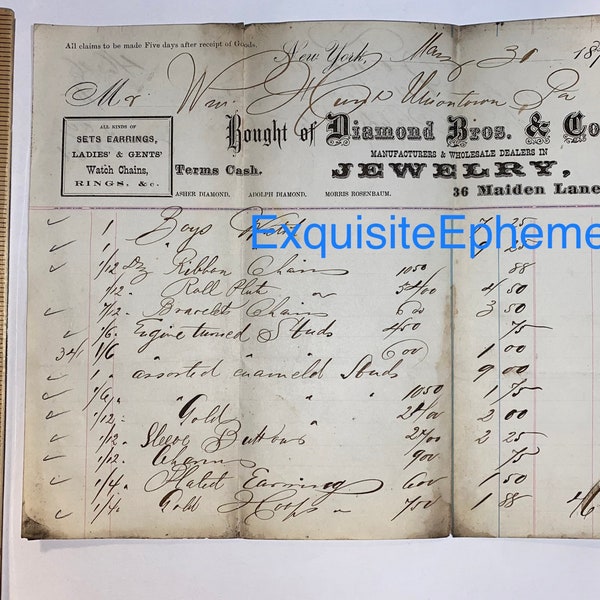 All claims to be made Five days after receipt of Goods.
New York, May 31 187
Mr Wm. Hugh Uniontown Pa
ALL KINDS OF
SETS EARRINGS,
LADIES' & GENTS'
Watch Chains,
RINGS, &c.
Bought of Diamond Bros. & Co
MANUFACTURERS & WHOLESALE DEALERS IN
Terms Cash. JEWELRY,
ASHER DIAMOND, ADOLPH DIAMOND, MORRIS ROSENBAUM. 36 Maiden Lane
✓ 1 Boys Watch 7 25
ExquisiteEpheme
✓ 1 " 25
✓ 1/12 Dz Ribbon Chains 10 50 88
1/12 " Roll Plate " 54/00 4 50
✓ 7/12 " Bracelet Chains 6 00 3 50
✓ 1/6 " Engine turned Studs 4 50 75
341 1/6 " " " 6 00 1 00
✓ 1 " assorted enameld Studs 9 00
✓ 1/6 " " " " 10 50 1 75
✓ 1/12 " Gold " 24/00 2 00
✓ 1/12 " Sleeve Buttons 27/00 2 25
✓ 1/12 " Charms 9 00 75
✓ 1/4 " Plated Earrings 6 00 1 50
✓ 1/4 " Gold Hoops " 7 50 1 88